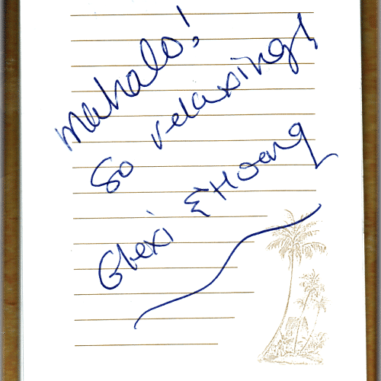 Mahalo!
So relaxing!
& Hoang